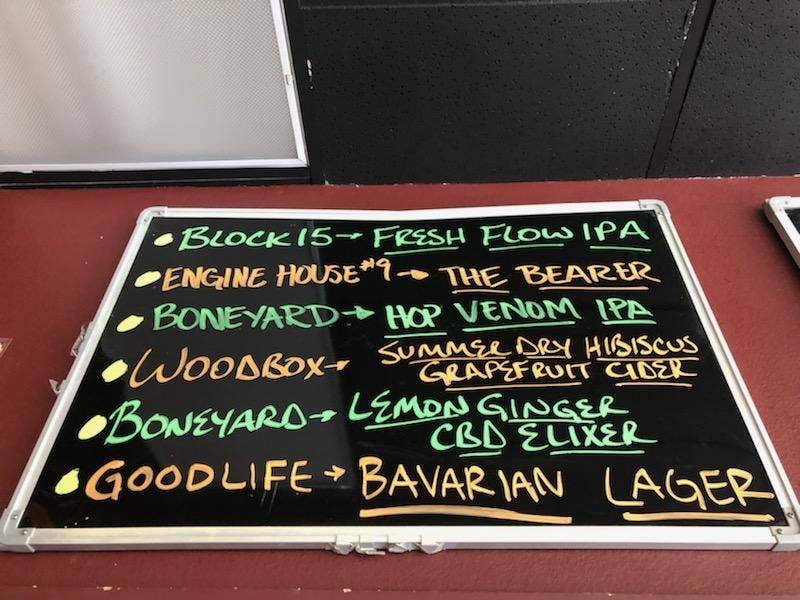 • BLOCK 15→ FRESH FLOW IPA
• ENGINE HOUSE #9→ THE BEARER
• BONEYARD→ HOP VENOM IPA
• WOODBOX→ SUMMER DRY HIBISCUS
GRAPEFRUIT CIDER
• BONEYARD→ LEMON GINGER
CBD ELIXER
• GOODLIFE→ BAVARIAN LAGER